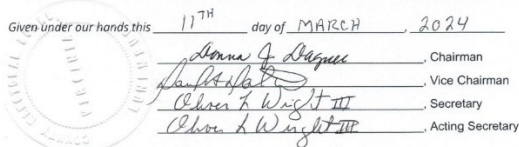 Given under our hands this 11TH day of MARCH, 2024
Donna J Dagner, Chairman
, Vice Chairman
Oliver L Wright III, Secretary
Oliver L Wright III, Acting Secretary
VIRGINIA